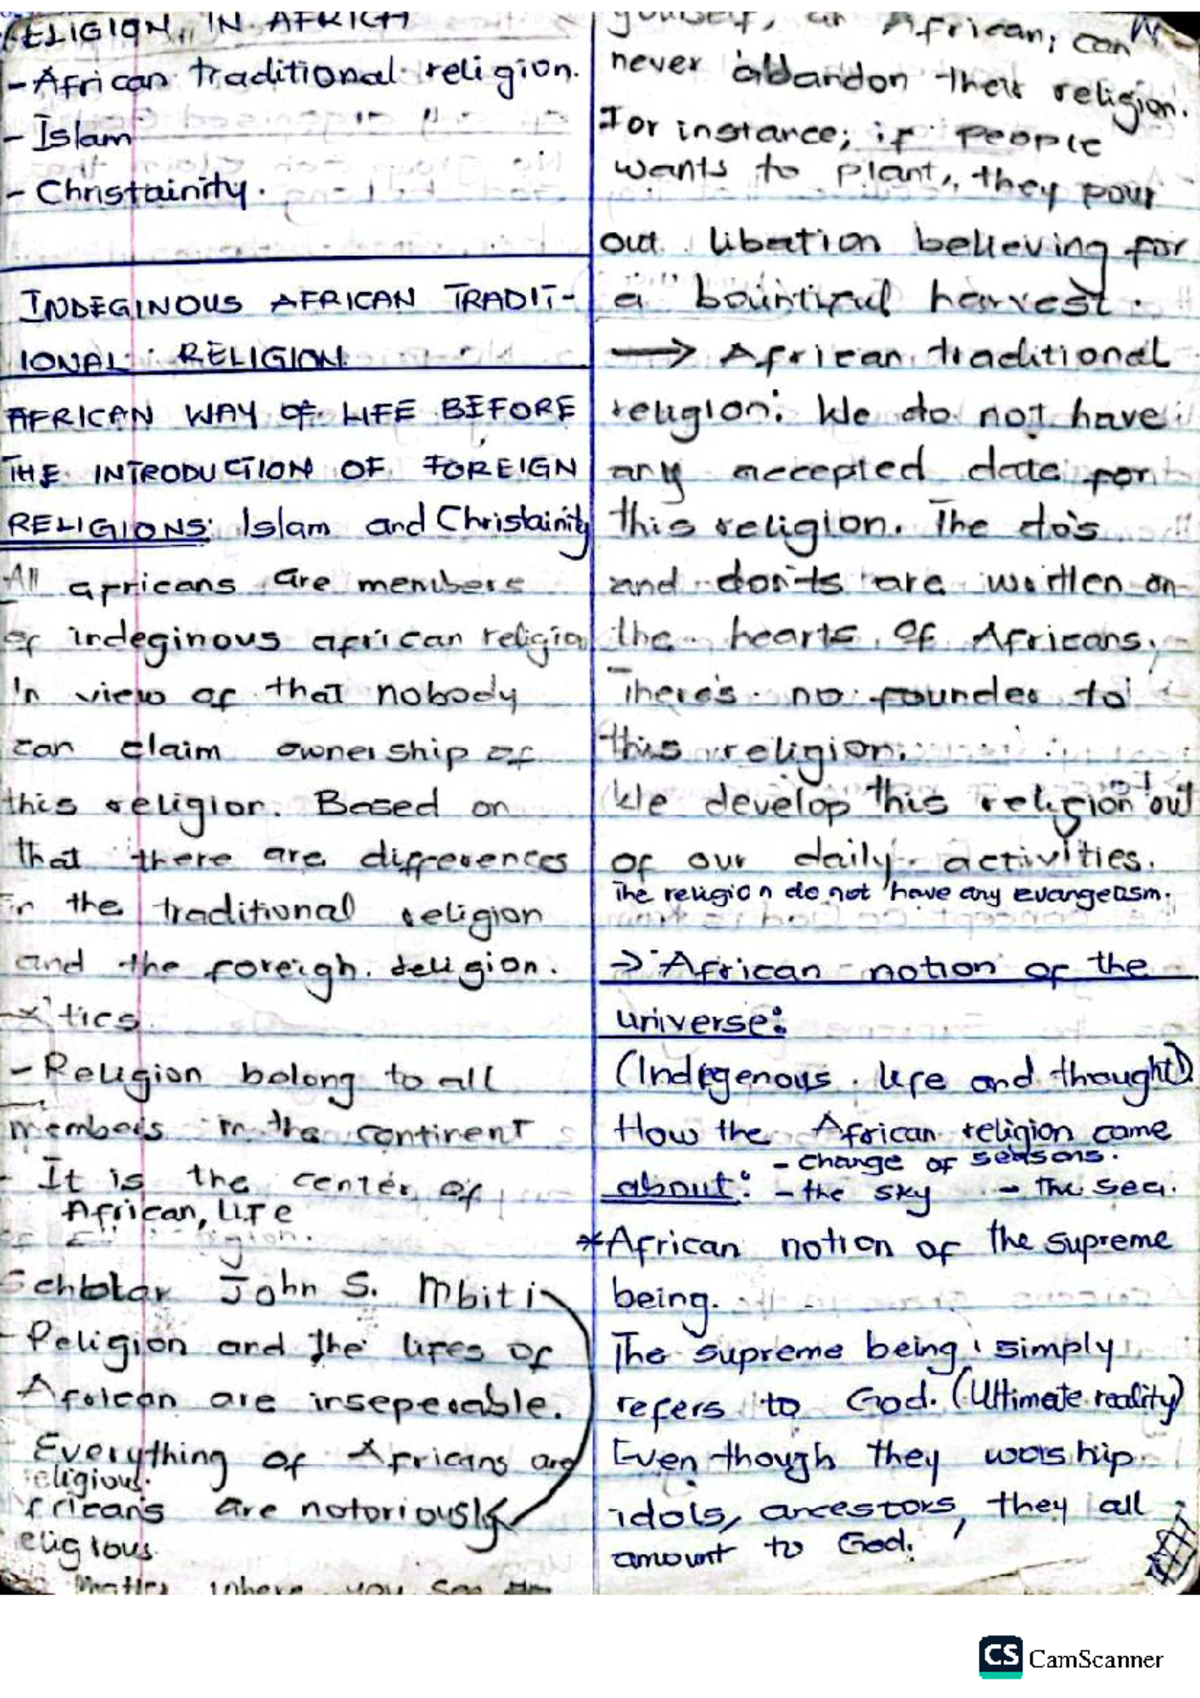 RELIGION IN AFRICA
- African traditional religion.
- Islam
- Christainity.
INDEGINOUS AFRICAN TRADIT-
IONAL RELIGION
AFRICAN WAY OF LIFE BEFORE
THE INTRODUCTION OF FOREIGN
RELIGIONS: Islam and Christainity
All africans are members
of indeginous african religion
In view of that nobody
can claim ownership of
this religion. Based on
that there are differences
in the traditional religion
and the foreigh religion.
x'tics
- Religion belong to all
members in the continent
- It is the center of
African, life
Scholar John S. Mbiti
- Religion and the lifes of
African are inseperable.
Everything of Africans are
religious.
Africans are notoriously
religious.
Matter where you see
yourself, an African, can
never abandon their religion.
For instance, if people
wants to plant, they pour
out libation believing for
a bountiful harvest.
→ African traditional
religion: We do not have
any accepted date for
this religion. The do's
and don'ts are written on
the hearts of Africans.
There's no founder to
this religion.
We develop this religion out
of our daily activities.
The religion do not have any evangelism.
→ African notion of the
universe:
(Indigenous life and thought)
How the African religion came
about: - change of seasons.
- the sky - The sea.
*African notion of the supreme
being.
The supreme being simply
refers to God. (Ultimate reality)
Even though they worship
idols, ancestors, they all
amount to God.
CS CamScanner